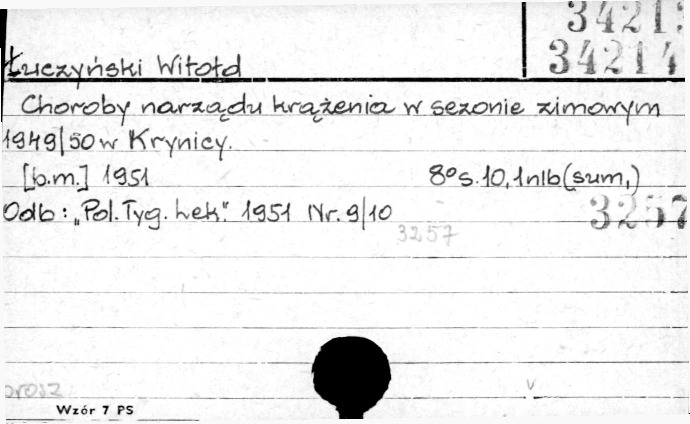 34213
34214
Łuczyński Witołd
Choroby narządu krążenia w sezonie zimowym
1949/50 w Krynicy.
[b.m.] 1951 8°s.10,1nlb(sum,)
Odb: „Pol.Tyg.Lek". 1951 Nr. 9/10 3257
3257
brosz
v
Wzór 7 PS